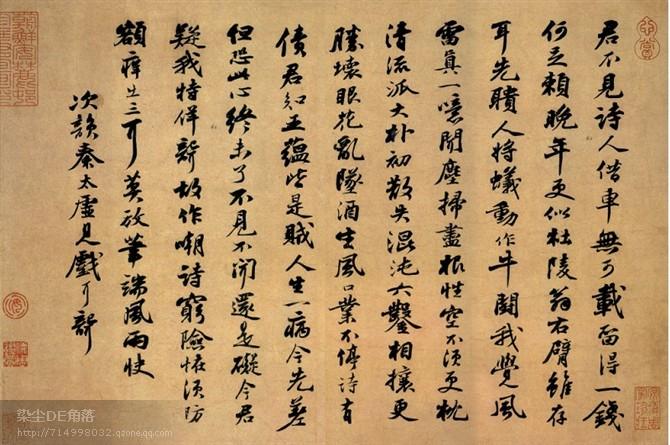 君不見詩人借車無可載留得一錢
何足賴晚年更似杜陵翁右臂雖存
耳先聵人將蟻動作牛鬪我覺風
雷真一噫聞塵掃盡根性空不須更枕
清流派大朴初散失混沌六鑿相攘更
勝壞眼花亂墜酒生風口業不停詩有
債君知五蘊皆是賊人生一病今先差
但恐此心終未了不見不聞還是礙今君
疑我特佯聾故作嘲詩窮險怪須防
額癢出三耳莫放筆端風雨快
次韻秦太虛見戲耳聾
染尘DE角落
http://714998032.qzone.qq.com